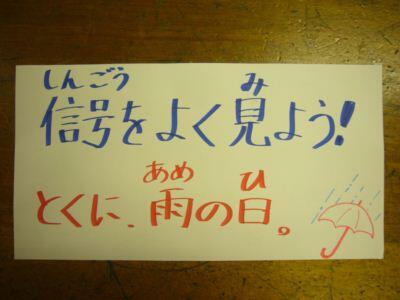 しんごう み
信号をよく見よう!
あめ ひ
とくに、雨の日。